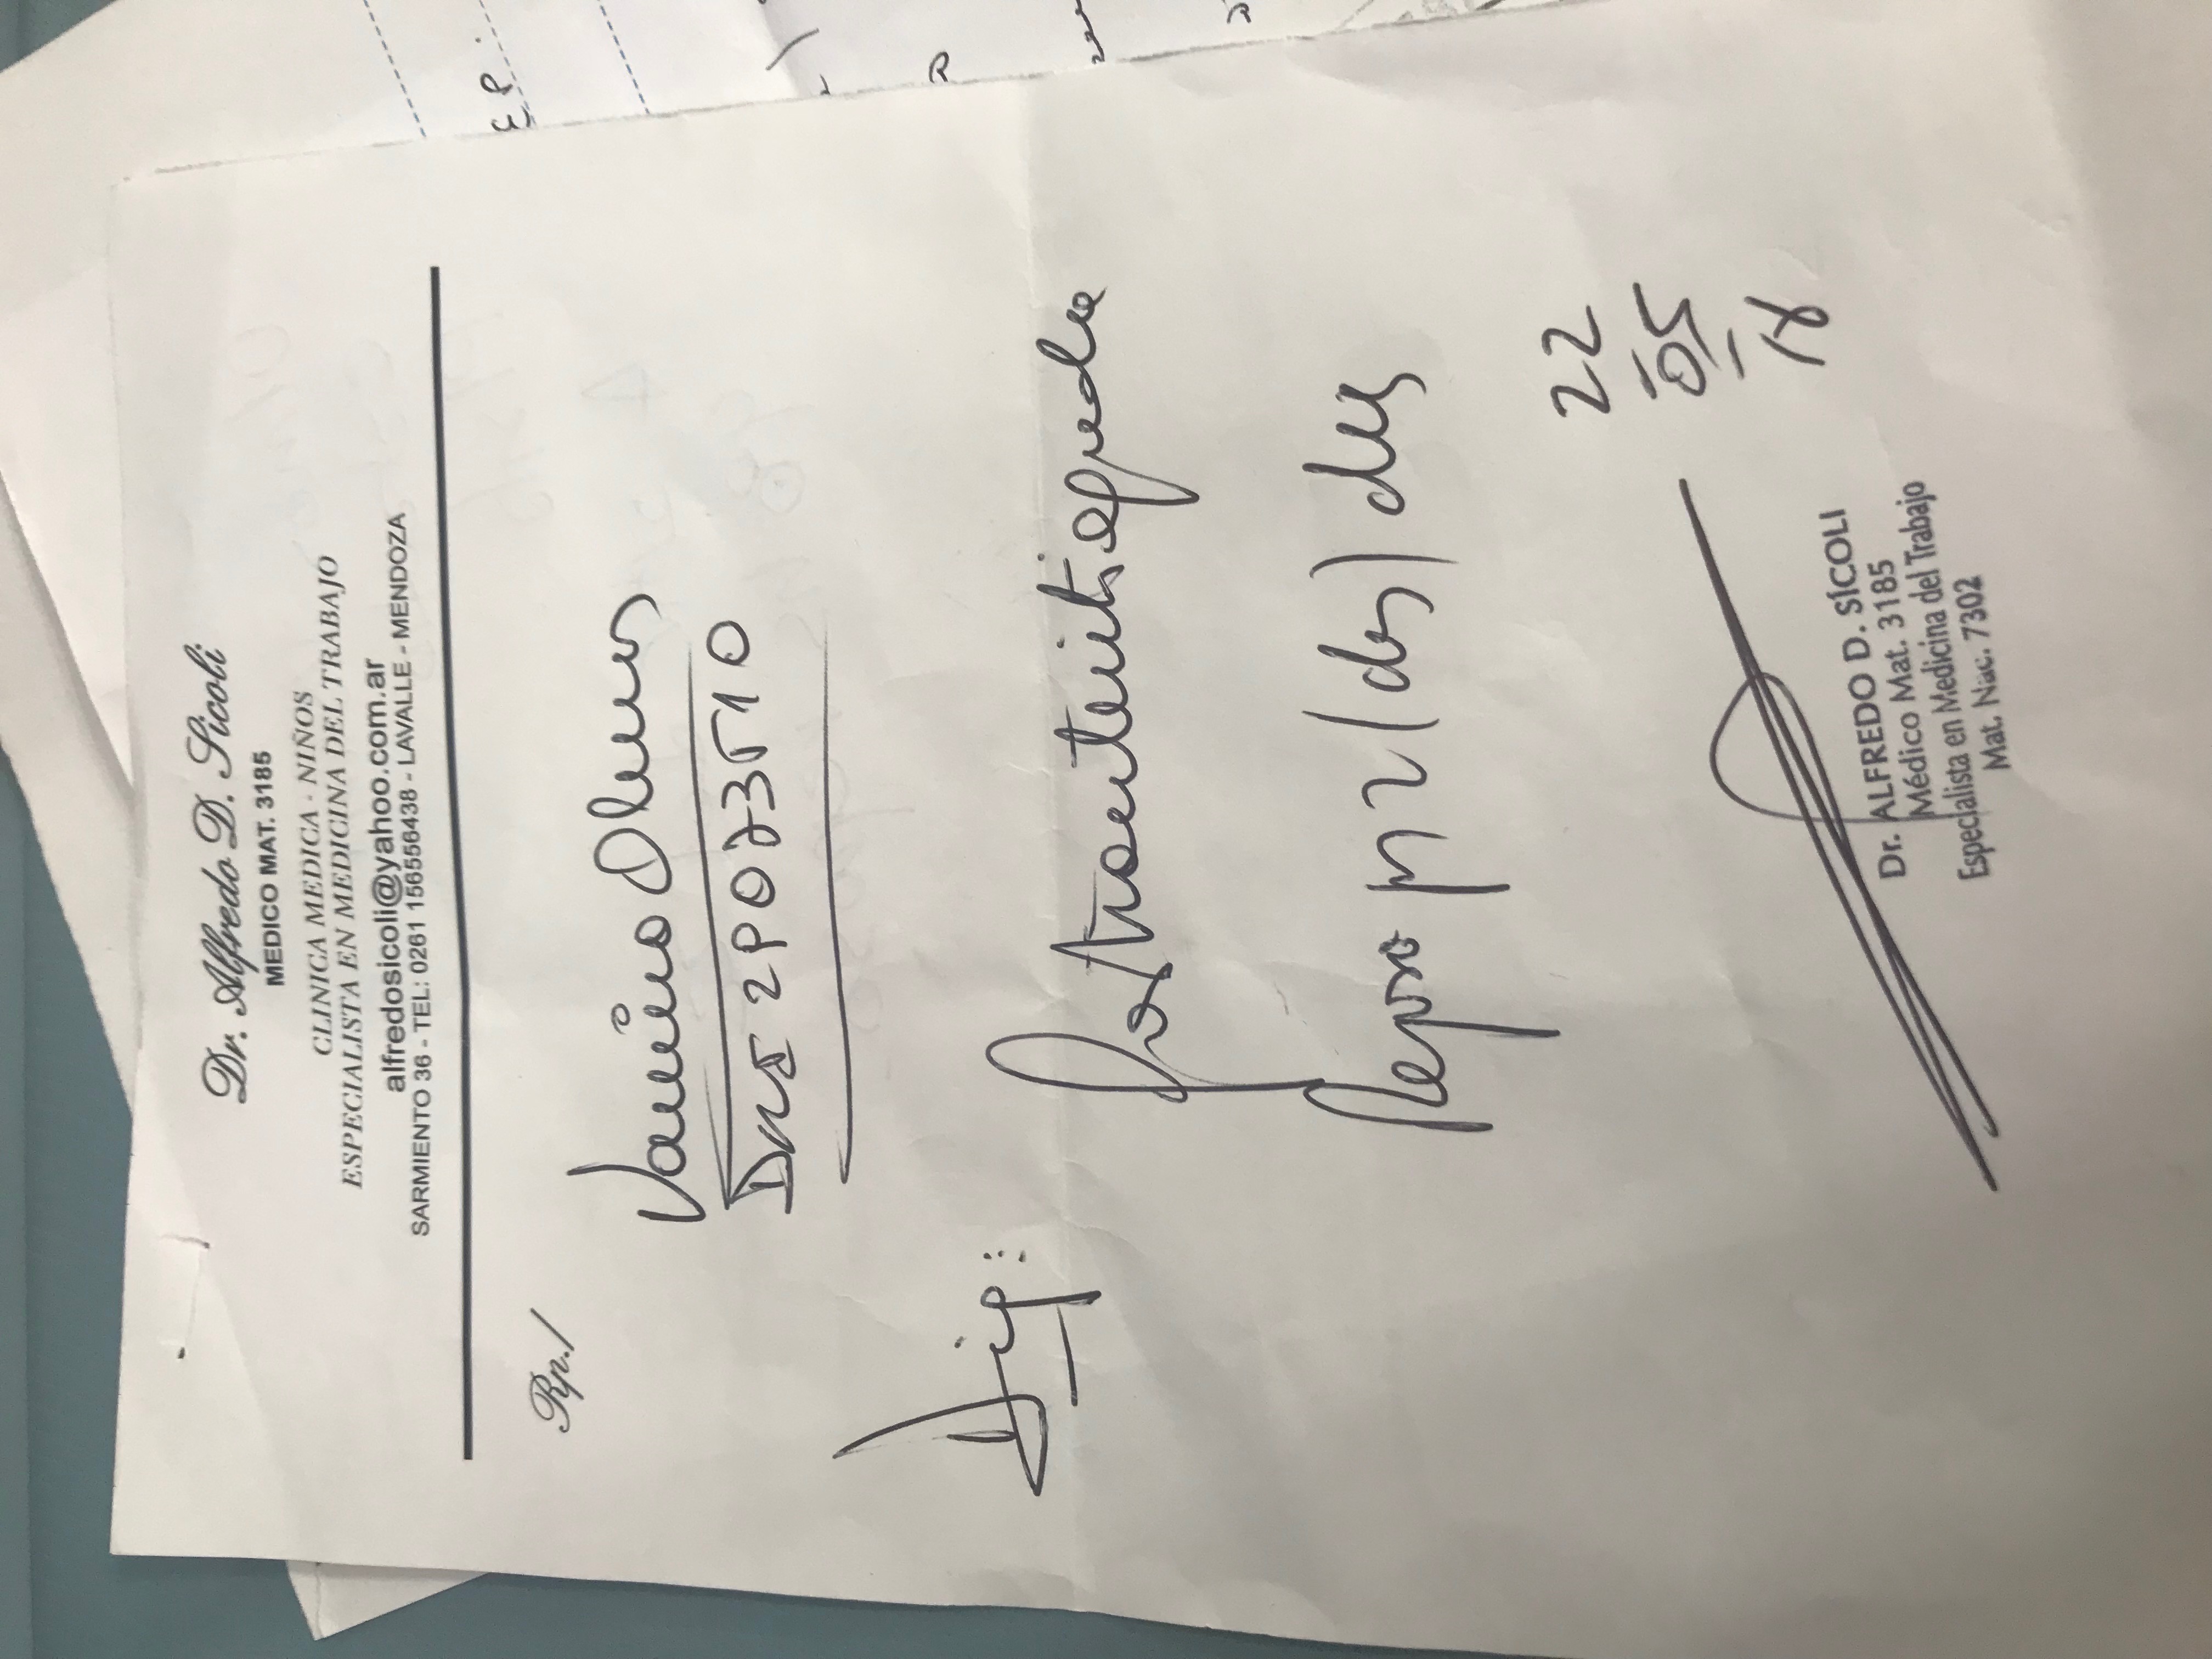 Dr. Alfredo D. Sicoli
MEDICO MAT. 3185
CLINICA MEDICA - NIÑOS
ESPECIALISTA EN MEDICINA DEL TRABAJO
alfredosicoli@yahoo.com.ar
SARMIENTO 36 - TEL: 0261 156556438 - LAVALLE - MENDOZA
Rp./
Vanina Olmos
DNI 29073510
Diag:
Gastroenteritis aguda
Reposo por 2 (dos) días
22
05
18
Dr. ALFREDO D. SÍCOLI
Médico Mat. 3185
Especialista en Medicina del Trabajo
Mat. Nac. 7302